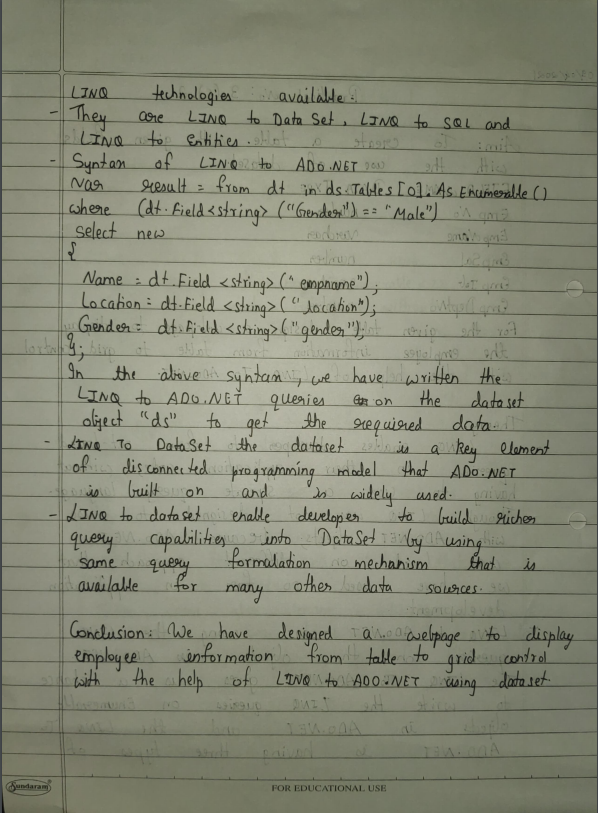 LINQ technologies available:
- They are LINQ to Data Set, LINQ to SQL and
LINQ to Entities.
- Syntax of LINQ to ADO.NET
Var result = from dt in ds.Tables[0].As Enumerable()
where (dt.Field<string> ("Gender") == "Male")
select new
{
Name = dt.Field <string> ("empname");
Location = dt.Field <string> ("location");
Gender = dt.Field <string> ("gender");
};
In the above syntax, we have written the
LINQ to ADO.NET queries on the dataset
object "ds" to get the required data.
- LINQ TO DataSet the dataset is a key element
of disconnected programming model that ADO.NET
is built on and is widely used.
- LINQ to dataset enable developer to build richer
query capabilities into DataSet by using
same query formulation mechanism that is
available for many other data sources.
Conclusion: We have designed a webpage to display
employee information from table to grid control
with the help of LINQ to ADO.NET using dataset
Sundaram
FOR EDUCATIONAL USE